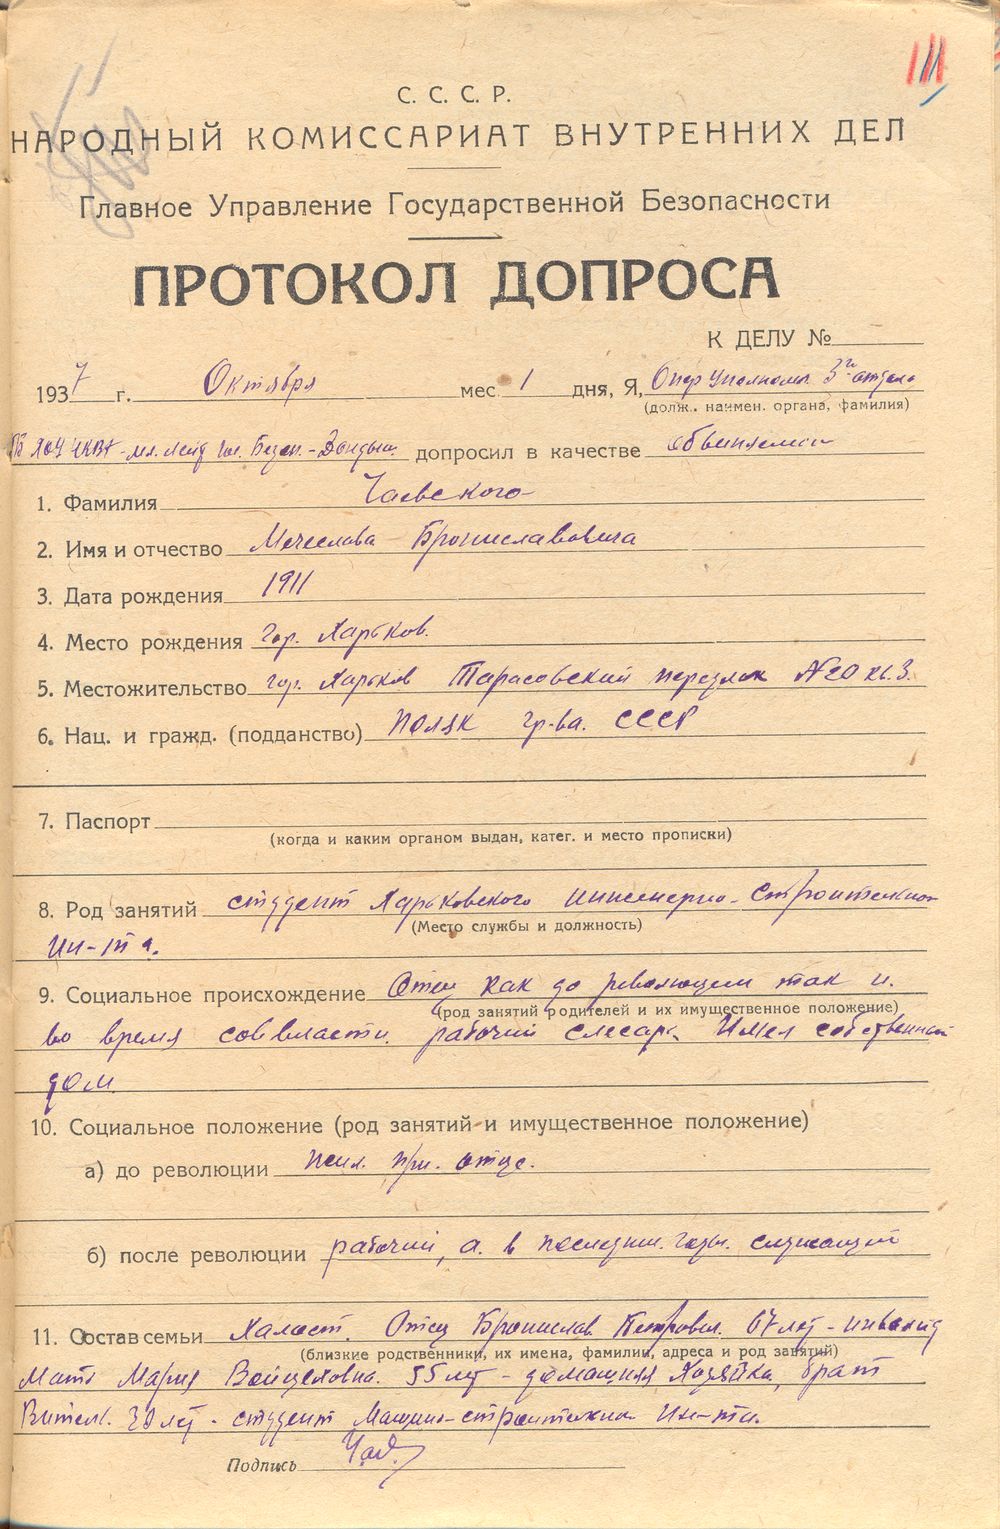 111
С. С. С. Р.
НАРОДНЫЙ КОМИССАРИАТ ВНУТРЕННИХ ДЕЛ
Главное Управление Государственной Безопасности
ПРОТОКОЛ ДОПРОСА
К ДЕЛУ №
1937 г. Октября мес. 1 дня, Я, Опер Уполномоч. 3го отдела
(долж. наимен. органа, фамилия)
ХОУ НКВД - мл. лейт Гос. Безоп. - допросил в качестве обвиняемого
1. Фамилия Чаевского
2. Имя и отчество Мечеслова Брониславовича
3. Дата рождения 1911
4. Место рождения гор. Харьков.
5. Местожительство гор. Харьков Тарасовский переулок №20 кв. 3.
6. Нац. и гражд. (подданство) поляк гр-ва. СССР
7. Паспорт
(когда и каким органом выдан, катег. и место прописки)
8. Род занятий студент Харьковского инженерно-строительного
(Место службы и должность)
ин-та.
9. Социальное происхождение Отец как до революции так и.
(род занятий родителей и их имущественное положение)
во время соввласти. рабочий слесарь. Имел собственный
дом.
10. Социальное положение (род занятий и имущественное положение)
а) до революции жил. при. отце.
б) после революции рабочий, а. в последн. годы. служащий
11. Состав семьи Халост. Отец Бронислав Петрович. 67 лет - инвалид
(близкие родственники, их имена, фамилии, адреса и род занятий)
Мать Мария Войцеховна. 55 лет - домашняя хозяйка, брат
лет - студент Машино-строительн. Ин-та.
Подпись